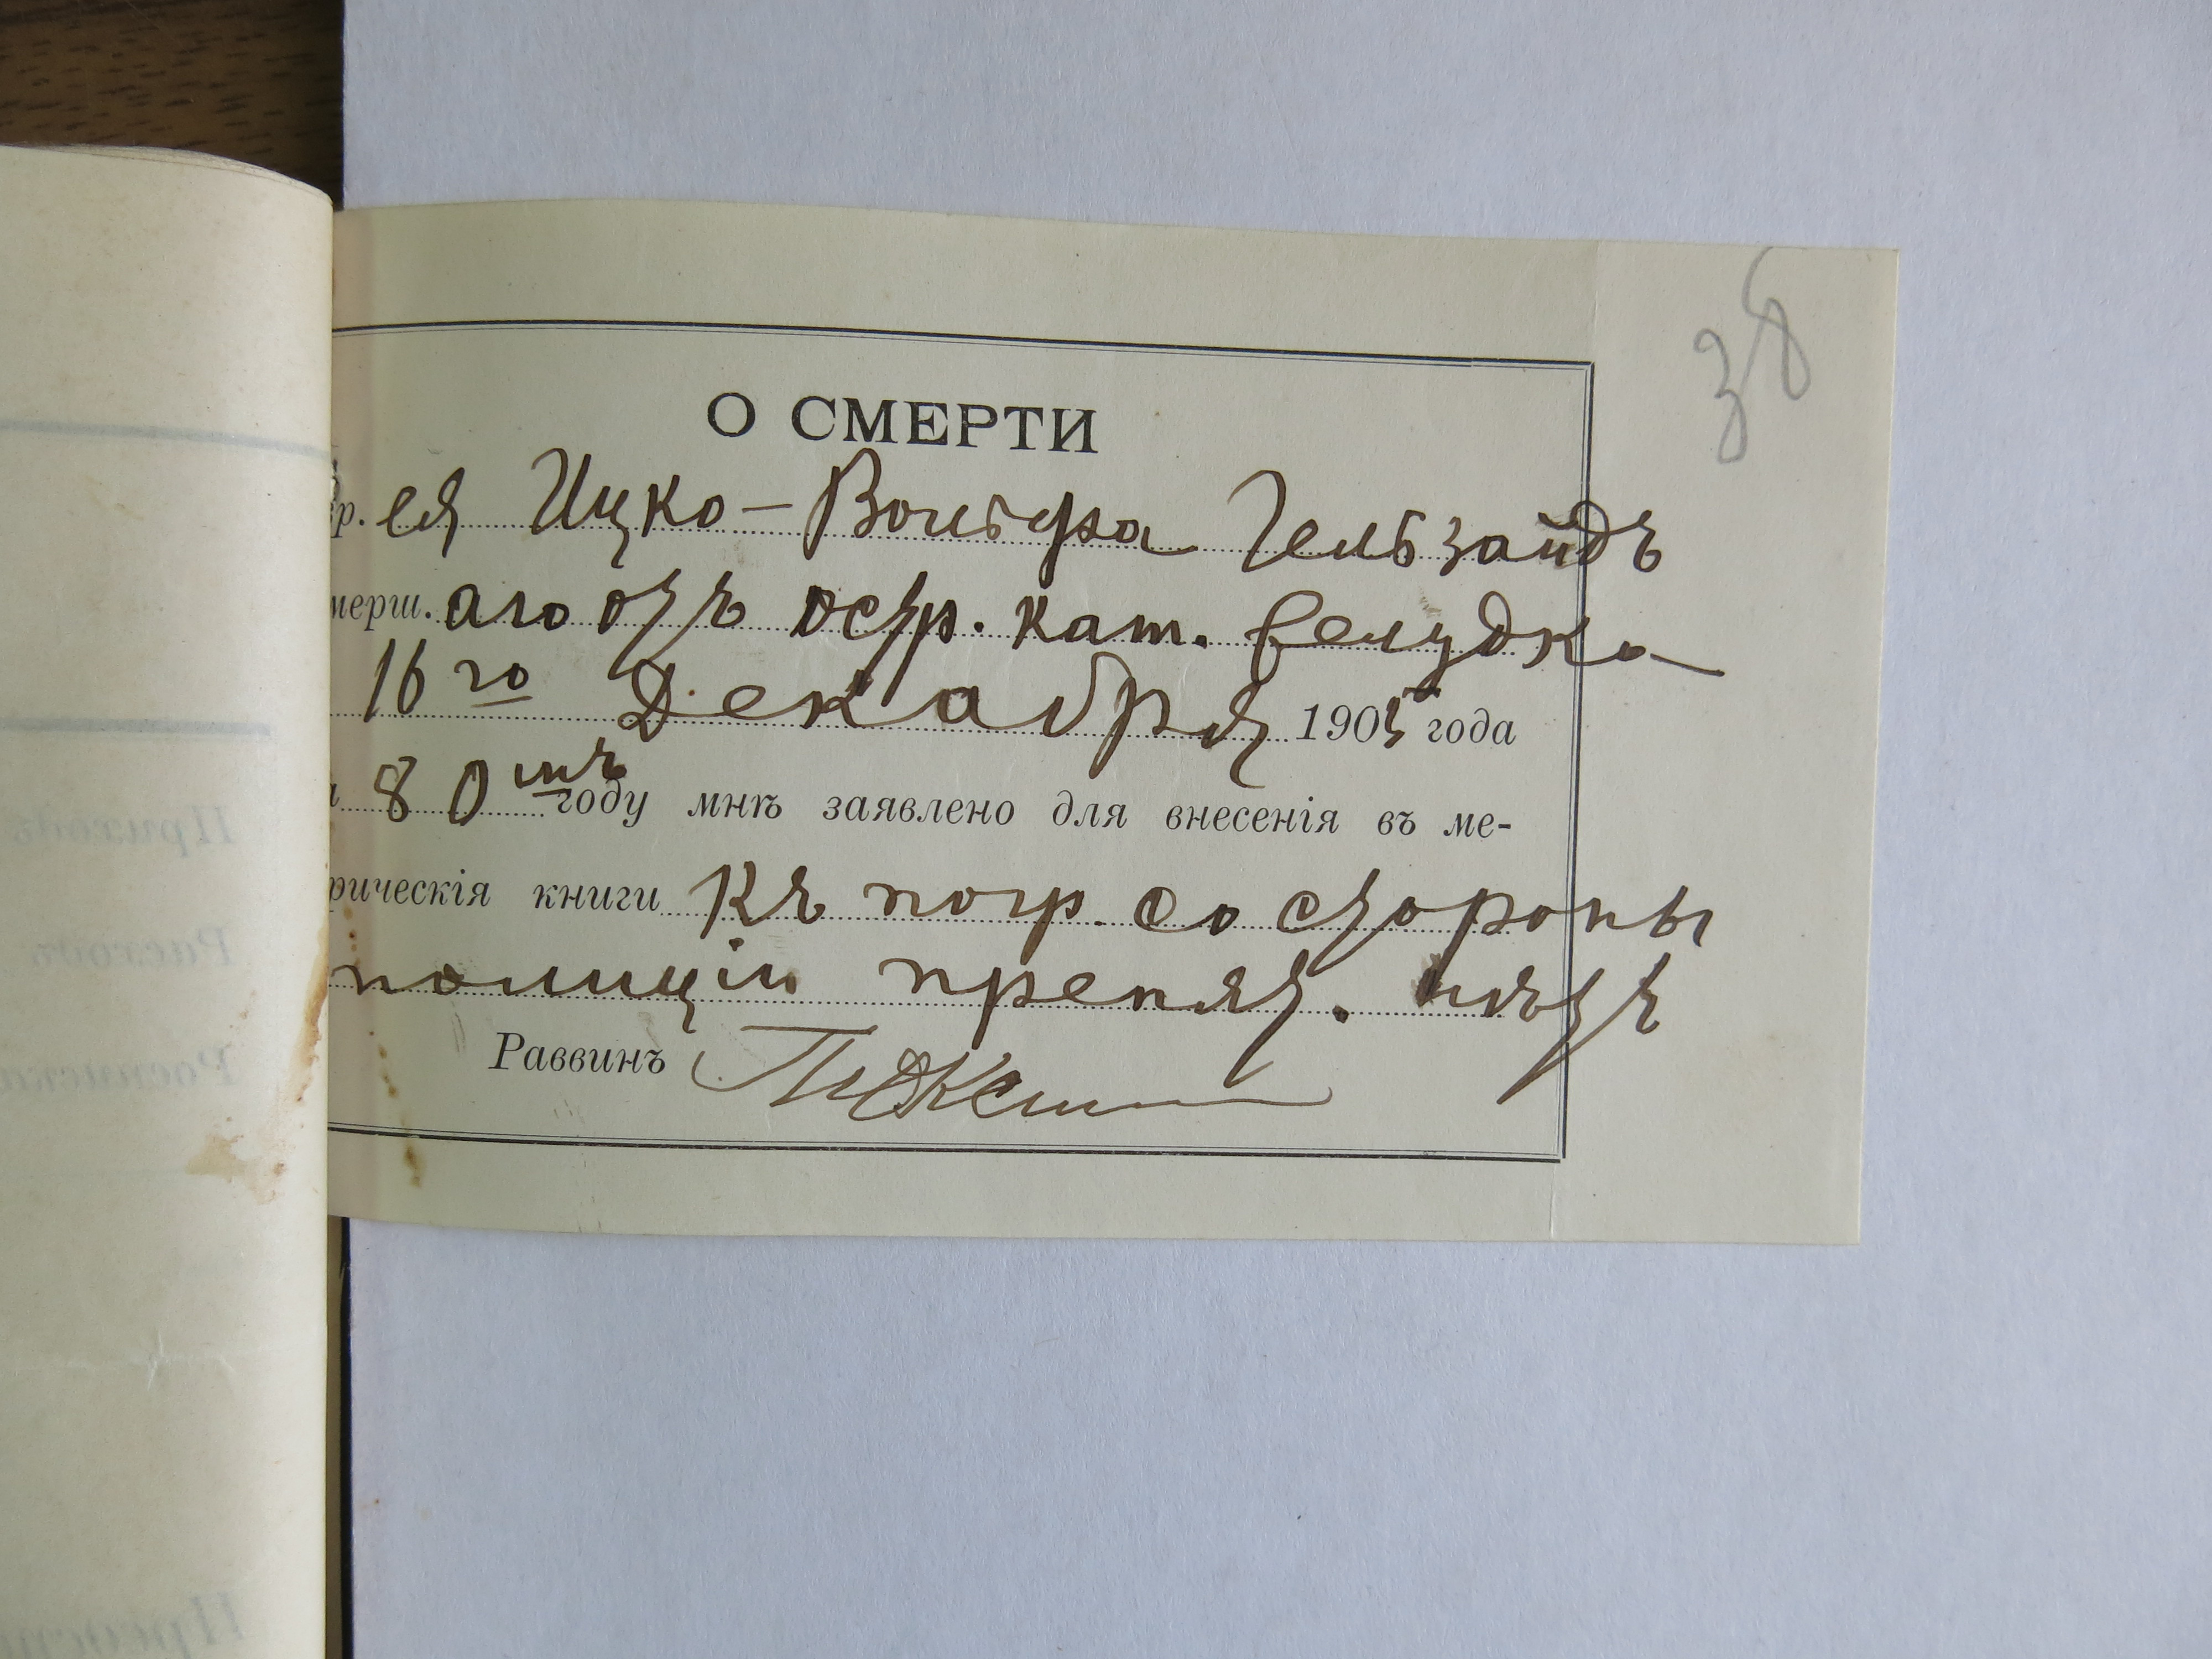 38
О СМЕРТИ
р. ея Ицко-Вольфа Гельзайдъ
мерш. аго отъ остр. кат. желудка
16го Декабря 1905 года
80мъ году мнѣ заявлено для внесенія въ ме-
рическія книги Къ погр. со стороны
полиціи препят. нѣтъ
Раввинъ